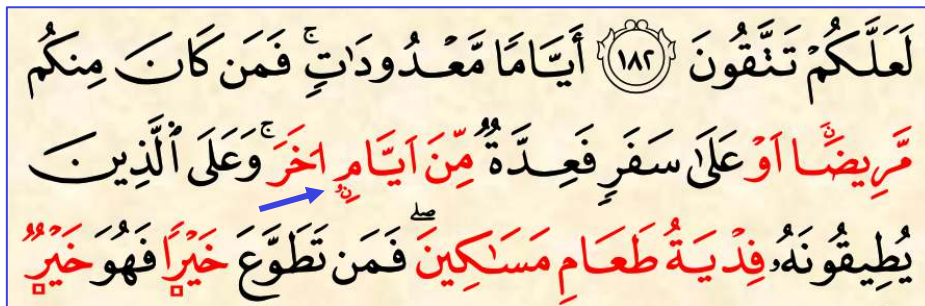 لَعَلَّكُمْ تَتَّقُونَ ١٨٢ أَيَّامٗا مَّعْدُودَٰتٖۚ فَمَن كَانَ مِنكُم
مَّرِيضَاۨ اَوْ عَلَىٰ سَفَرٖ فَعِدَّةٞ مِّنَ اَيَّامٍ اخَرَۚ وَعَلَى ٱلَّذِينَ
يُطِيقُونَهُۥ فِدْيَةُ طَعَامِ مَسَٰكِينَۖ فَمَن تَطَوَّعَ خَيْرٗا فَهُوَ خَيْرٞ